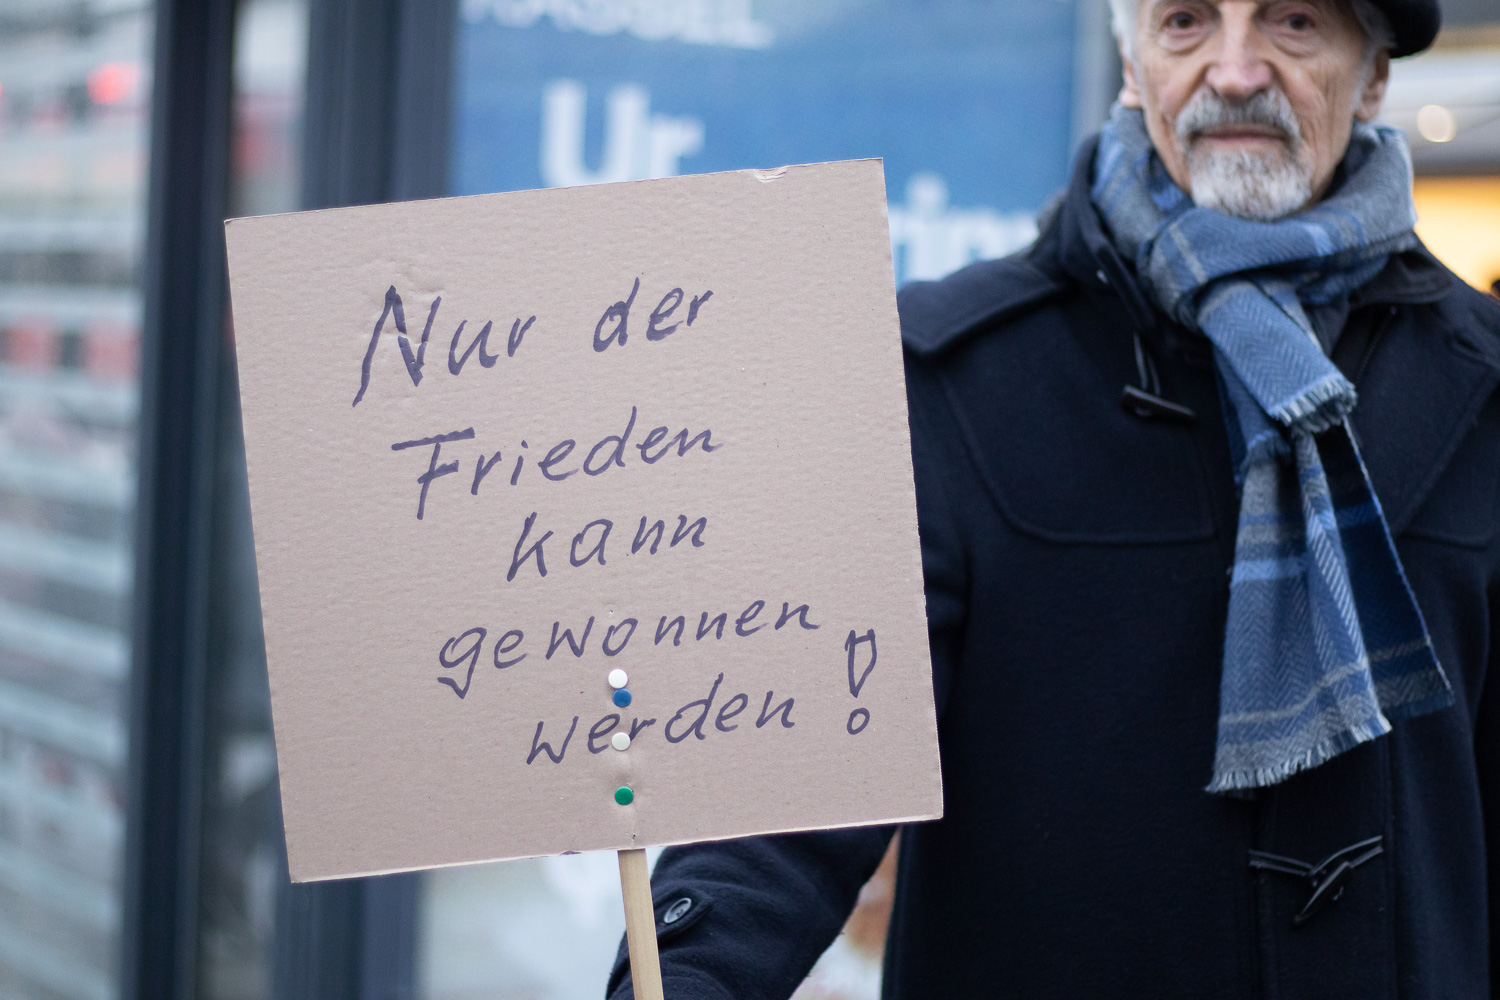 KASSEL
Ur
Nur der
Frieden
kann
gewonnen
werden!